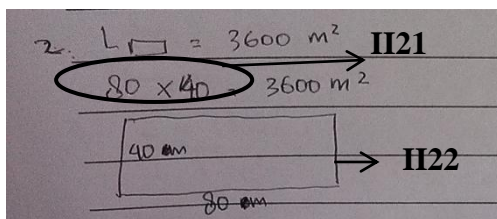 2. L▭ = 3600 m² II21
80 × 40 = 3600 m²
40 m II22
80 m